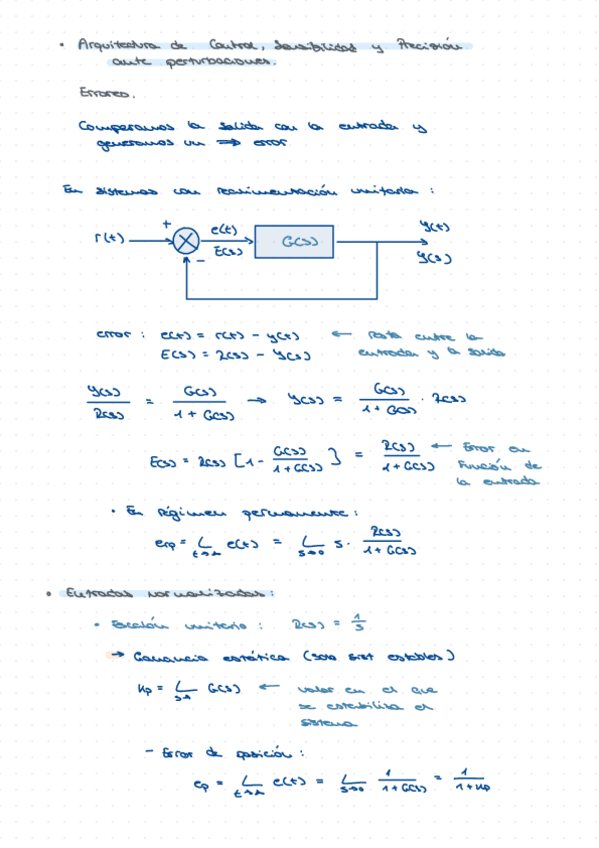 • Arquitectura de Control, Sensibilidad y Precisión
ante perturbaciones.
Errores.
Comparamos la salida con la entrada y
generamos un ⇒ error
En sistemas con realimentación unitaria :
r(t) + − e(t) E(s) G(s) y(t) Y(s)
error : e(t) = r(t) − y(t) ← Resta entre la
E(s) = R(s) − Y(s) entrada y la salida
Y(s)/R(s) = G(s)/(1 + G(s)) → Y(s) = G(s)/(1 + G(s)) · R(s)
E(s) = R(s) [1 − G(s)/(1 + G(s))] = R(s)/(1 + G(s)) ← Error en
Función de
la entrada
• En régimen permanente :
erp = L t→∞ e(t) = L s→0 s · R(s)/(1 + G(s))
• Entradas normalizadas :
• Escalón unitario : R(s) = 1/s
→ Ganancia estática (solo sist estables)
Kp = L s→0 G(s) ← valor en el que
se estabiliza el
sistema
− Error de posición :
ep = L t→∞ e(t) = L s→0 1/(1 + G(s)) = 1/(1 + Kp)